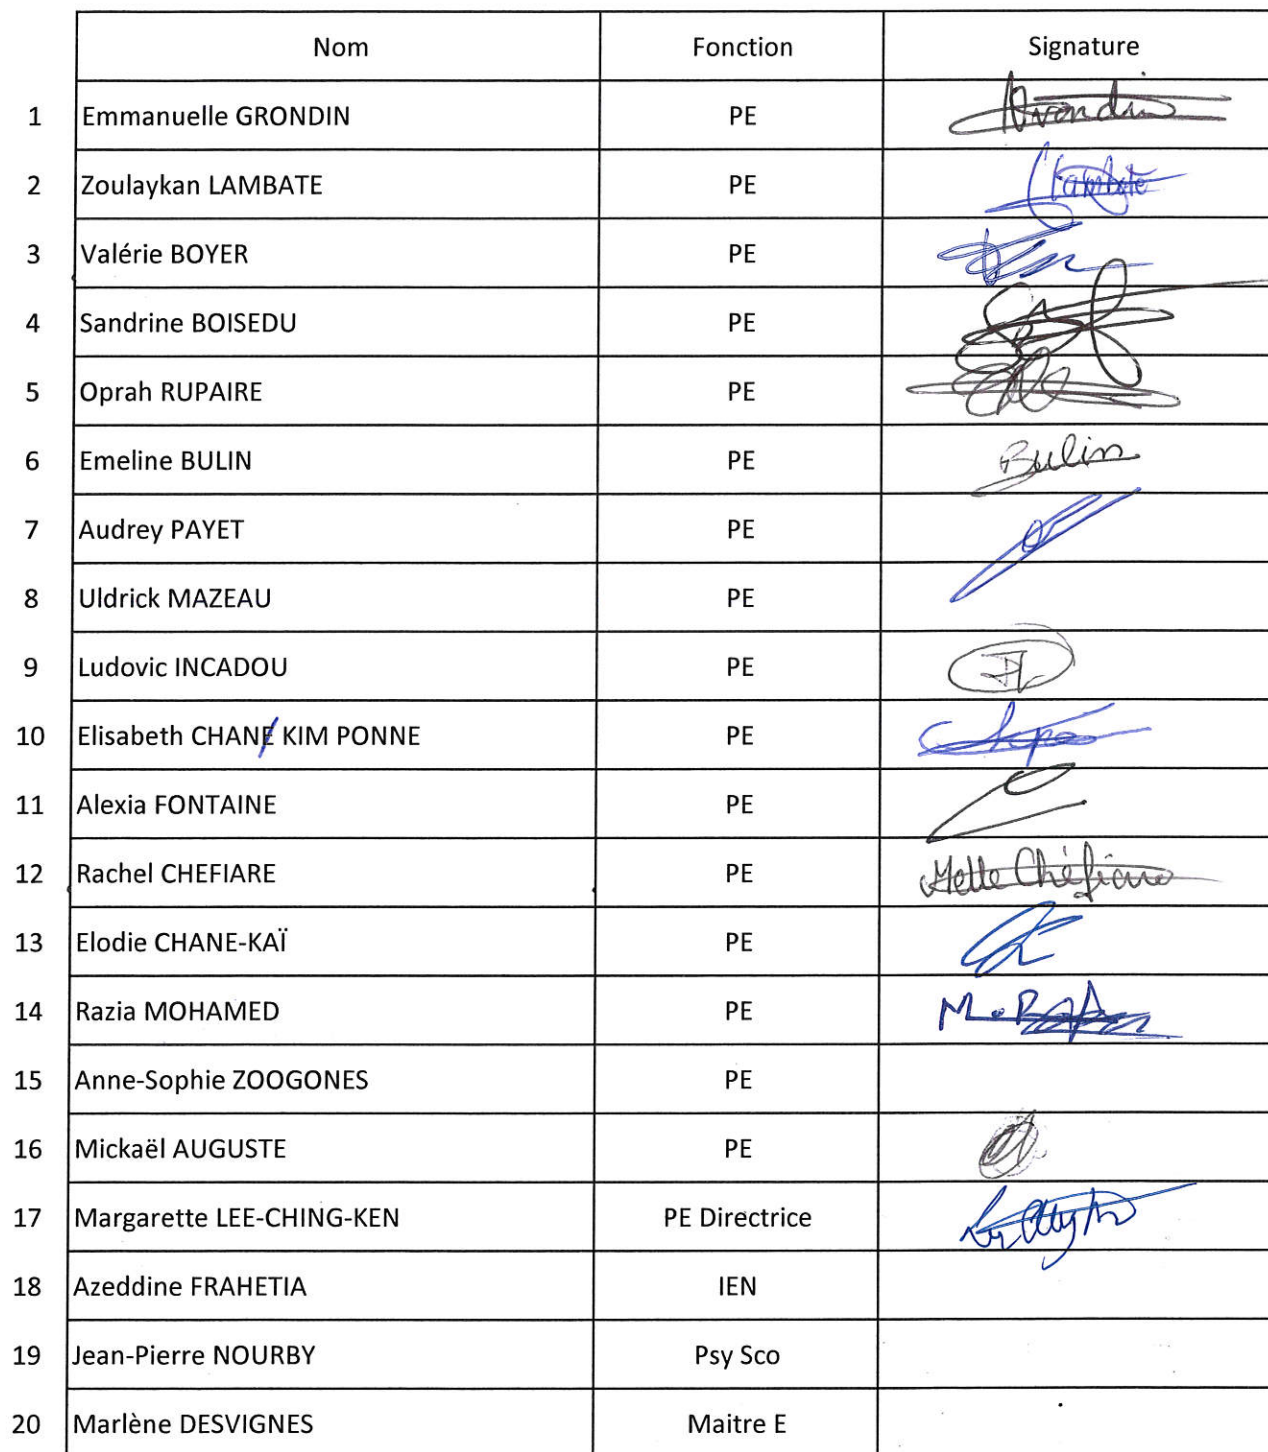 Nom Fonction Signature
1 Emmanuelle GRONDIN PE Grondin
2 Zoulaykan LAMBATE PE Lambate
3 Valérie BOYER PE
4 Sandrine BOISEDU PE
5 Oprah RUPAIRE PE
6 Emeline BULIN PE Bulin
7 Audrey PAYET PE
8 Uldrick MAZEAU PE
9 Ludovic INCADOU PE
10 Elisabeth CHANE KIM PONNE PE
11 Alexia FONTAINE PE
12 Rachel CHEFIARE PE Melle Chéfiare
13 Elodie CHANE-KAÏ PE
14 Razia MOHAMED PE
15 Anne-Sophie ZOOGONES PE
16 Mickaël AUGUSTE PE
17 Margarette LEE-CHING-KEN PE Directrice
18 Azeddine FRAHETIA IEN
19 Jean-Pierre NOURBY Psy Sco
20 Marlène DESVIGNES Maitre E